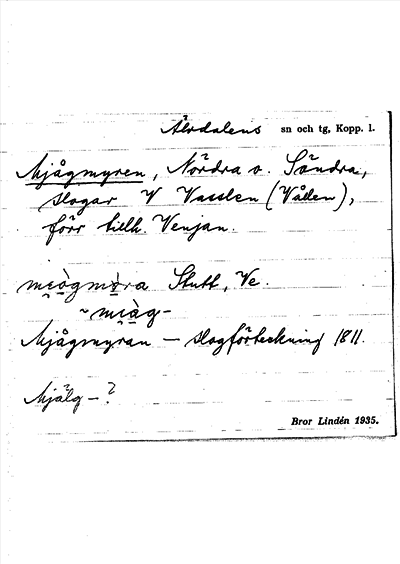 Älvdalens sn och tg, Kopp. l.
Mjågmyren, Nördra o. Söndra,
slogar V Vasslen (Vålen),
förr tillh. Venjan.
mɛògmỳra Stutt, Ve.
~ mɛàg-
Mjågmyran – slogförteckning 1811.
Mjälg-?
Bror Lindén 1935.